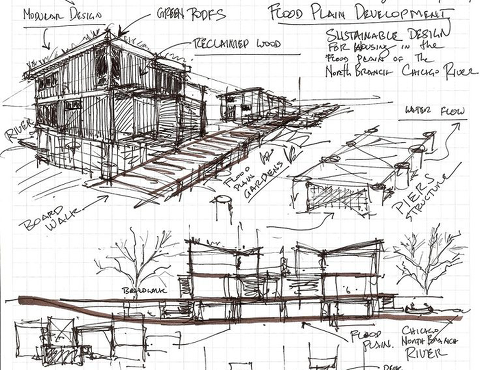 MODULAR DESIGN
GREEN ROOFS
FLOOD PLAIN DEVELOPMENT
RECLAIMED WOOD
SUSTAINABLE DESIGN
FOR HOUSING IN THE
FLOOD PLAINS OF THE
NORTH BRANCH CHICAGO RIVER
WATER FLOW
RIVER
FLOOD
PLAIN
GARDENS
BOARD
WALK
PIERS
STRUCTURE
BOARDWALK
FLOOD
PLAIN.
CHICAGO
NORTH BRANCH
RIVER